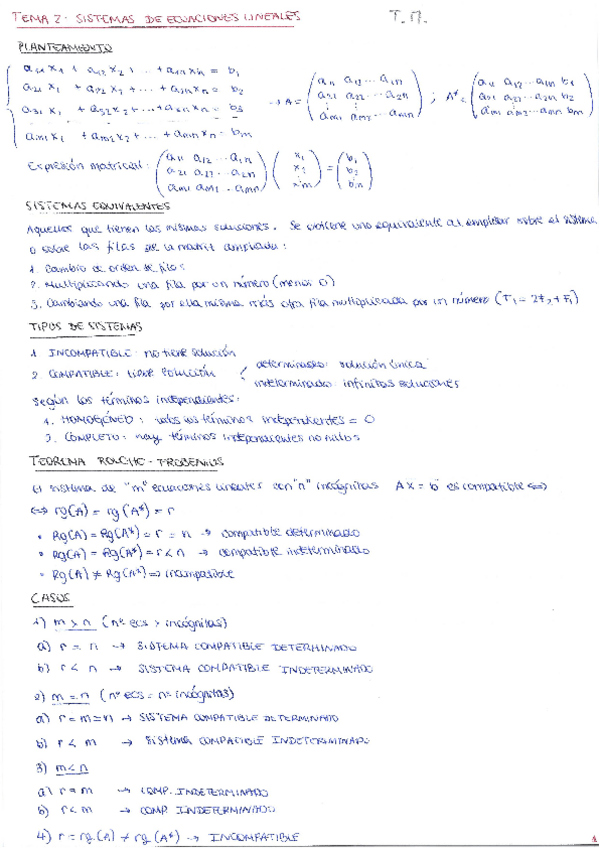 TEMA 2: SISTEMAS DE ECUACIONES LINEALES T.M.
PLANTEAMIENTO
a₁₁ x₁ + a₁₂ x₂ + ... + a₁ₙ xₙ = b₁
a₂₁ x₁ + a₂₂ x₂ + ... + a₂ₙ xₙ = b₂
a₃₁ x₁ + a₃₂ x₂ + ... + a₃ₙ xₙ = b₃
aₘ₁ x₁ + aₘ₂ x₂ + ... + aₘₙ xₙ = bₘ
→ A = (a₁₁ a₁₂ ... a₁ₙ
a₂₁ a₂₂ ... a₂ₙ
aₘ₁ aₘ₂ ... aₘₙ) ; A* = (a₁₁ a₁₂ ... a₁ₙ b₁
a₂₁ a₂₂ ... a₂ₙ b₂
aₘ₁ aₘ₂ ... aₘₙ bₘ)
Expresión matricial: (a₁₁ a₁₂ ... a₁ₙ
a₂₁ a₂₂ ... a₂ₙ
aₘ₁ aₘ₂ ... aₘₙ) (x₁ x₂ ⋮ ) = (b₁ b₂ ⋮ )
SISTEMAS EQUIVALENTES
Aquellos que tienen las mismas soluciones. Se obtiene uno equivalente al emplear sobre el sistema
o sobre las filas de la matriz ampliada:
1. Cambio de orden de filas
2. Multiplicando una fila por un número (menos 0)
3. Cambiando una fila por ella misma más otra fila multiplicada por un número
TIPOS DE SISTEMAS
1. INCOMPATIBLE: no tiene solución
2. COMPATIBLE: tiene solución
determinado: solución única
indeterminado: infinitas soluciones
Según los términos independientes:
1. HOMOGÉNEO: los términos independientes = 0
2. COMPLETO: hay términos independientes no nulos
TEOREMA ROUCHÉ-FROBENIUS
El sistema de "m" ecuaciones lineales con "n" incógnitas AX = b es compatible ⟺
⟺ rg(A) = rg(A*) = r
• Rg(A) = Rg(A*) = r = n → compatible determinado
• Rg(A) = Rg(A*) = r < n → compatible indeterminado
• Rg(A) ≠ Rg(A*) ⇒ incompatible
CASOS
1) m > n (nº ecs > incógnitas)
a) r = n → SISTEMA COMPATIBLE DETERMINADO
b) r < n → SISTEMA COMPATIBLE INDETERMINADO
2) m = n (nº ecs = nº incógnitas)
a) r = m = n → SISTEMA COMPATIBLE DETERMINADO
b) r < m → SISTEMA COMPATIBLE INDETERMINADO
3) m < n
a) r = m → COMP. INDETERMINADO
b) r < m → COMP. INDETERMINADO
4) r = rg(A) ≠ rg(A*) → INCOMPATIBLE
1